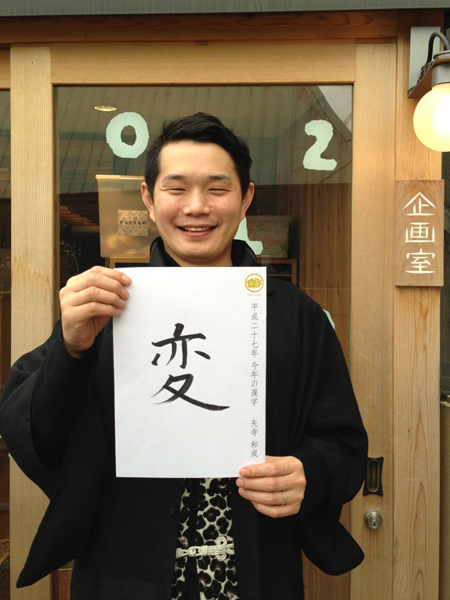 変
平成二十七年 今年の漢字 矢寺 和成
企画室
02